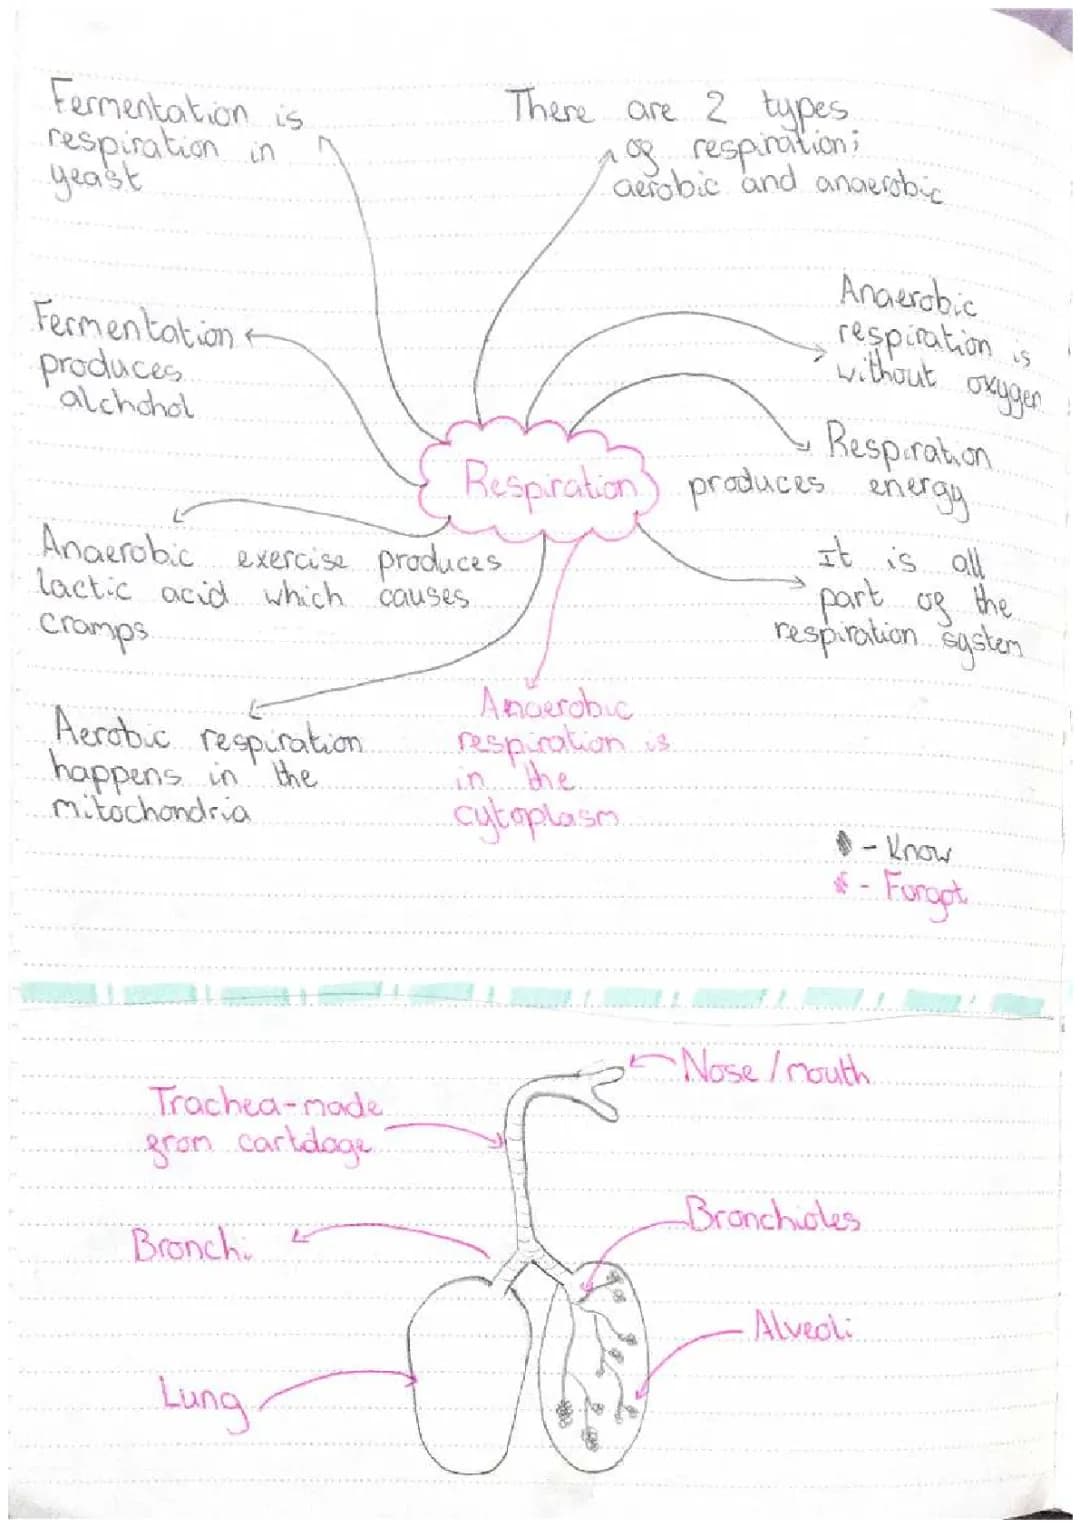 Fermentation is
respiration in
yeast
There are 2 types
of respiration;
aerobic and anaerobic
Fermentation
produces
alchohol
Anaerobic
respiration is
without oxygen
Respiration
Respiration
produces energy
Anaerobic exercise produces
lactic acid which causes
cramps
It is all
part of the
respiration system
Aerobic respiration
happens in the
mitochondria
Anaerobic
respiration is
in the
cytoplasm
- Know
- Forgot
Nose / mouth
Trachea-made
from cartilage
Bronchioles
Bronchi
Alveoli
Lung